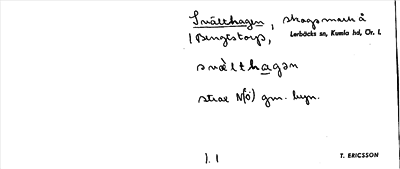 Snälthagen, skogsmark å
Bengtstorp, Lerbäcks sn, Kumla hd, Ör. l.
snὰlthagən
strax N(ö) gm. byn.
T. ERICSSON